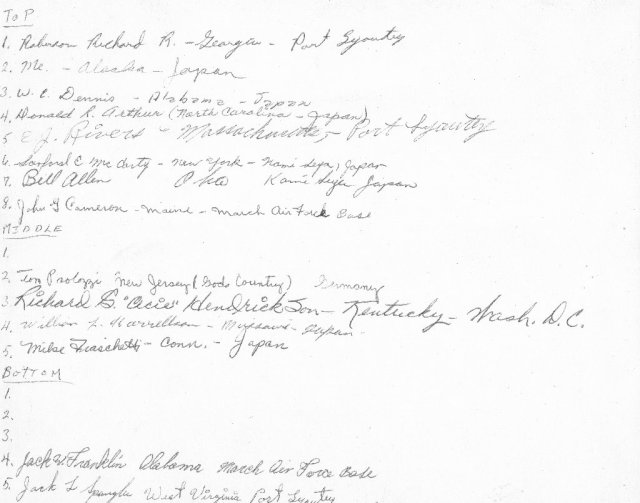 TOP
1. Robinson Richard R. - Georgia - Port Lyautey
2. Me. - Alaska - Japan
3. W. E. Dennis - Alabama - Japan
4. Donald R. Arthur (North Carolina - Japan)
5 E. J. Rivers - Massachusetts - Port Lyautey
6. Sanford E McCarty - New York - Kami Seya, Japan
7. Bill Allen Kami Seya Japan
8. John G Cameron - Maine - March Air Force Base
MIDDLE
1.
2. Tom Paolozzi New Jersey (Gods Country) Germany
3 Richard G. "Acie" Hendrickson - Kentucky - Wash. D.C.
4. - Missouri - Japan -
5. Mike - Conn. - Japan
BOTTOM
1.
2.
3.
4. Jack W. Franklin Alabama March Air Force Base
5. Jack L Spangler West Virginia Port Lyautey